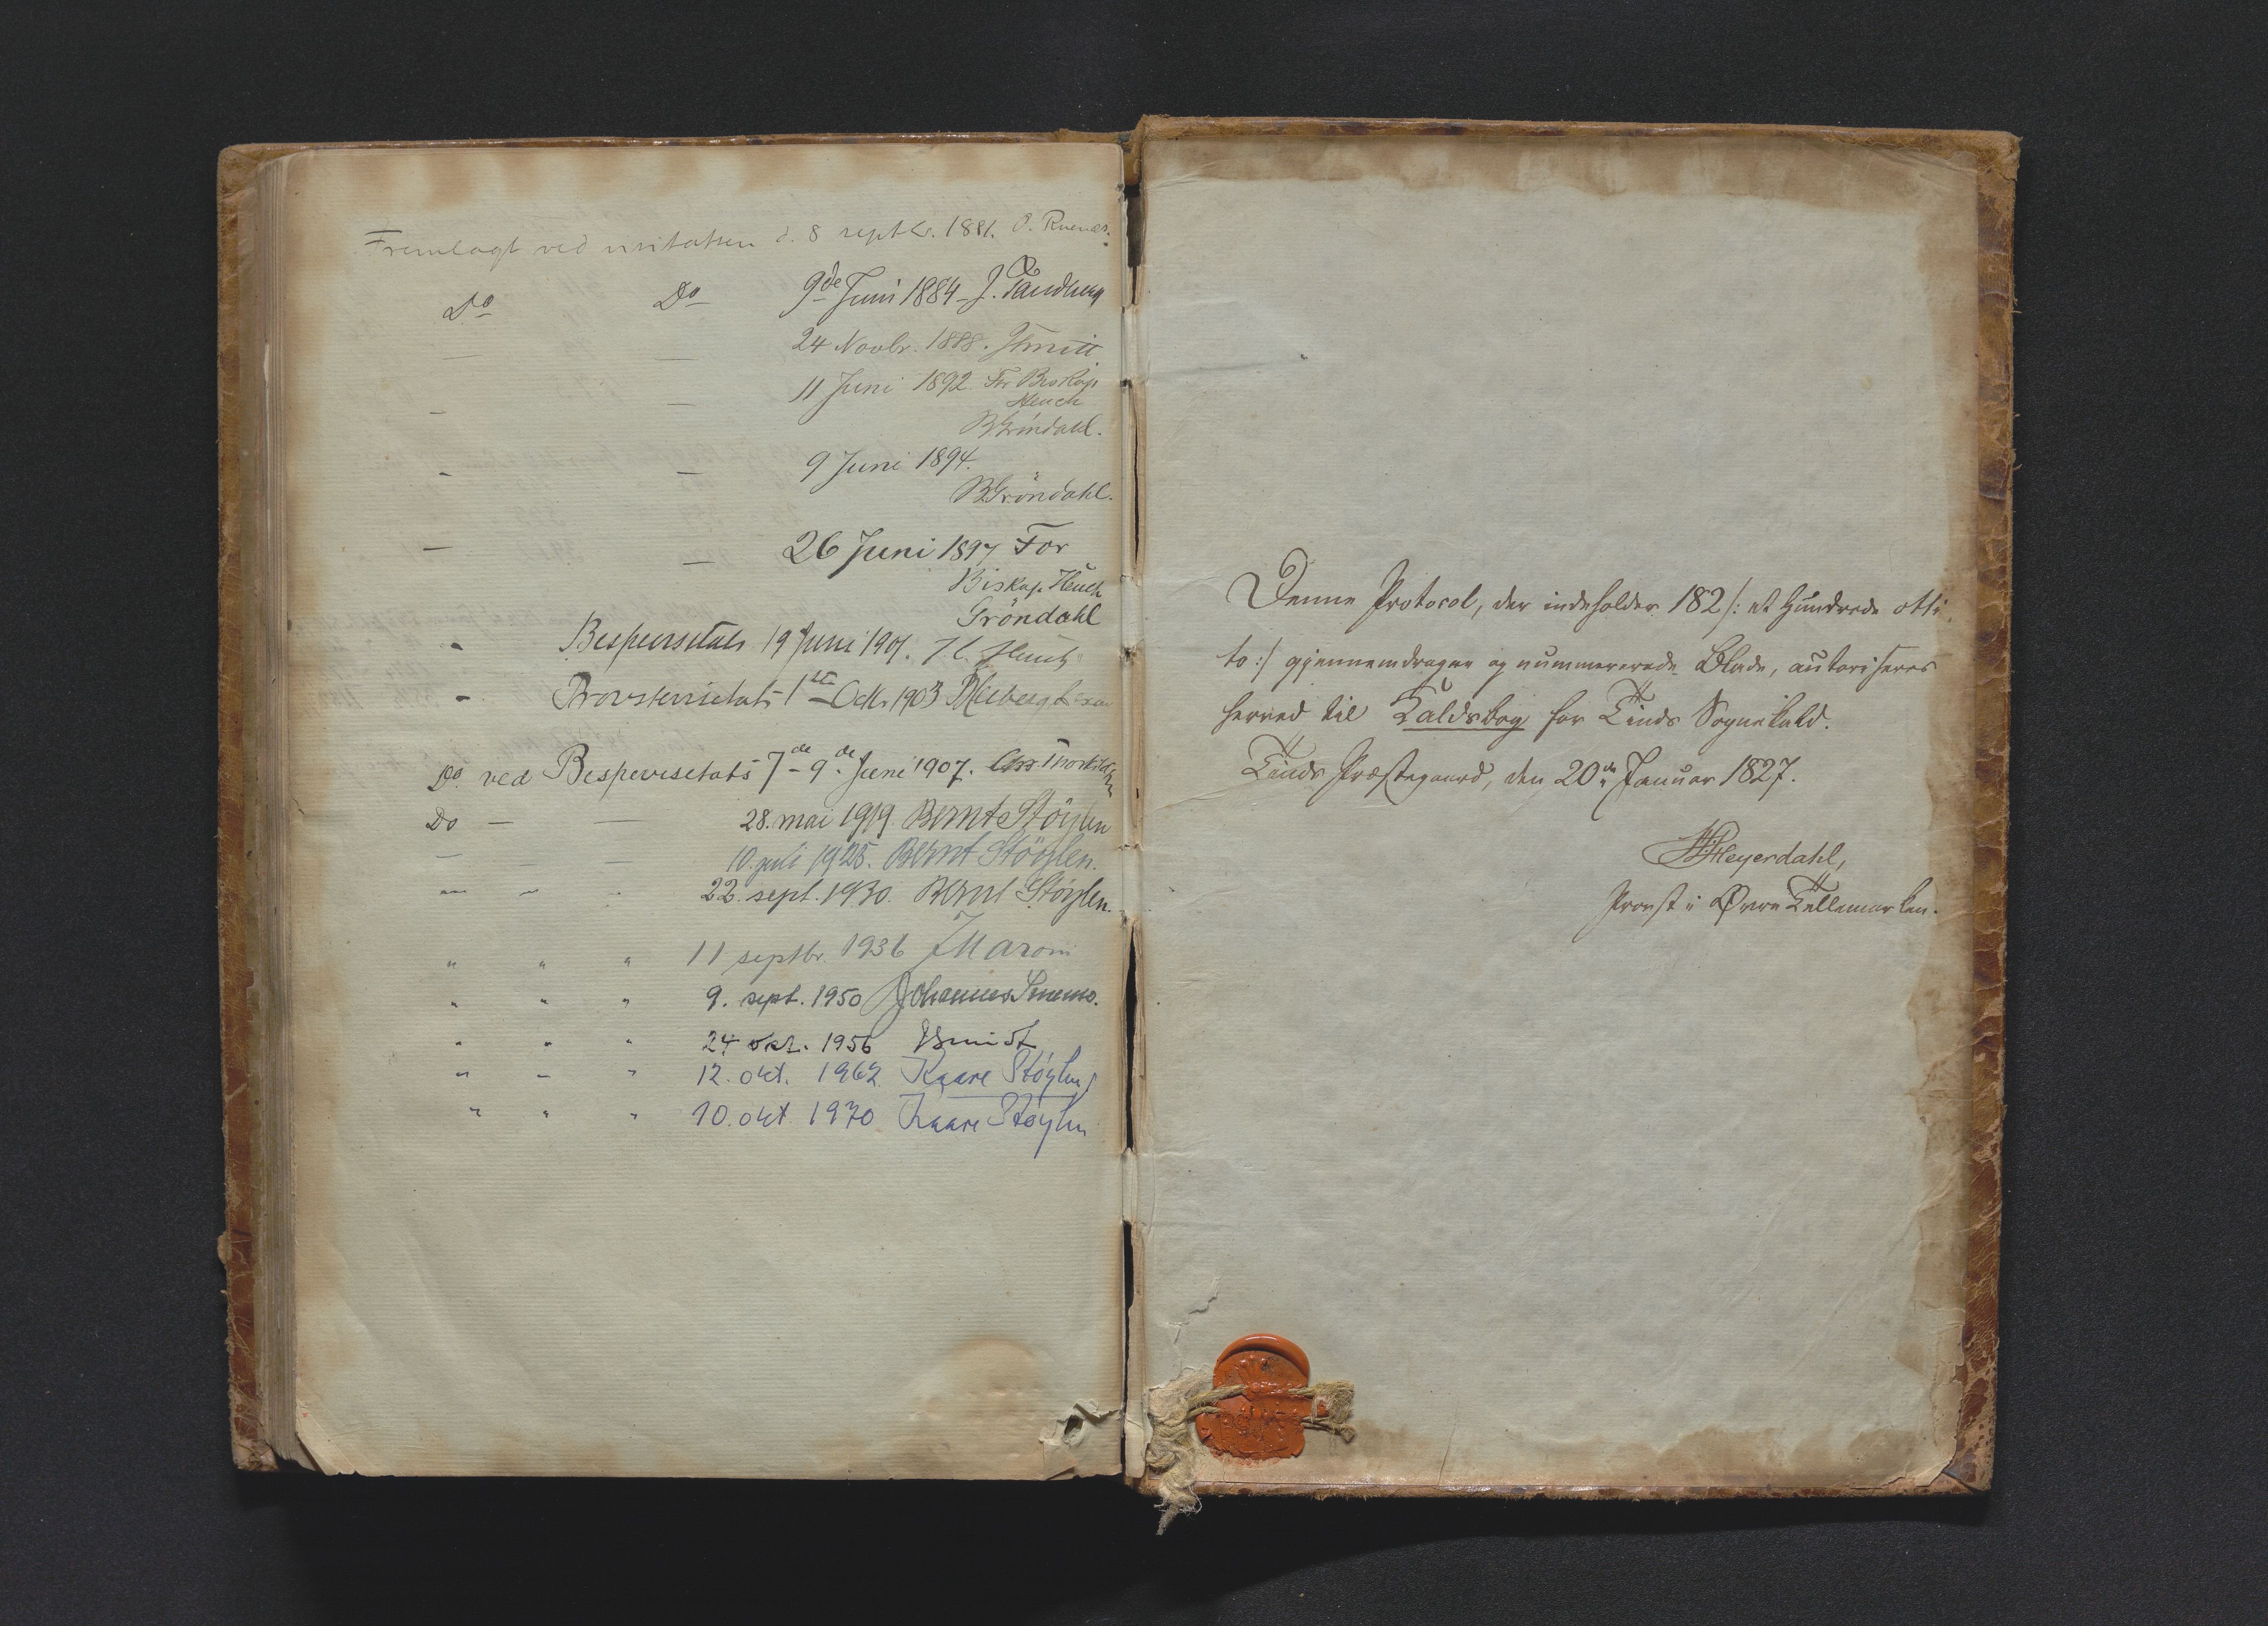 Fremlagt ved visitatsen d. 8 septbr. 1881. O.
Do Do 9de Juni 1884 - J. Tandberg
— — 24 Novbr. 1888.
— — 11 Juni 1892. For Biskop
Heuch
B. Gröndahl.
- — 9 Juni 1894.
B. Gröndahl.
— — 26 Juni 1897 For
Biskop Heuch
Gröndahl
- Bispevisitats 19 Juni 1901. J. C. Heuch
- Provstevisitats 1ste Octb. 1903
Do. ved Bispevisetats 7de - 9de Juni 1907.
Do — — 28. mai 1919. Bernt Stöylen
— — — 10. juli 1925. Bernt Stöylen.
— - - 22. sept. 1930. Bernt Stöylen.
" " " 11 septbr. 1936 J Maroni
" " " 9. sept. 1950 Johannes Smemo.
" " " 24 okt. 1956 Smidt
" " " 12. okt. 1962 Kaare Støylen
" " " 10. okt 1970 Kaare Støylen
Denne Protocol, der indeholder 182 /: et Hundrede otti
to :/ gjennemdragne og nummererede Blade, autoriseres
herved til Kaldsbog for Tinds Sognekald.
Tinds Præstegaard, den 20de Januar 1827.
Heyerdahl,
Provst i Øvre Tellemarken.